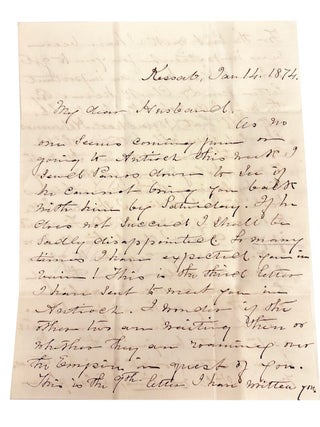 Kessab, Jan. 14. 1874.
My dear Husband.
As no
one seems coming from or
going to Antioch this week I
send Panos down to see if
he cannot bring you back
with him by Saturday. If he
does not succeed I shall be
sadly disappointed. So many
times I have expected you in
vain! This is the third letter
I have sent to meet you in
Antioch. I wonder if the
other two are waiting there or
whether they are roaming over
the Empire in quest of you.
This is the 9th letter I have written you